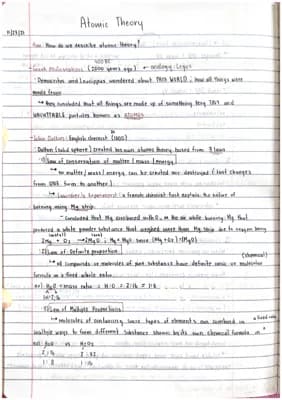 Atomic Theory
How do we describe atomic theory?
Greek Philosophers (2500 years ago) analogy: Legos
Democritus and Leucippus wondered about PHYS WORLD & how all things were
made from
↳ they concluded that all things are made up of something tiny, TINY and
UNCUTTABLE particles known as ATOMOS
John Dalton: English chemist (1800)
Dalton (solid sphere) created his own atomic theory based from 3 laws
① Law of conservation of matter / mass / energy
↳ no matter / mass / energy can be created nor destroyed (just changes
from ONE form to another)
↳ Lavoisier's Experiment: a french chemist that explain the nature of
burning using Mg strip.
Concluded that Mg combined with O₂ in the air while burning Mg that
produced a white powder substance that weighed more than Mg strip due to oxygen being
2Mg + O₂ → 2MgO
2) Law of Definite proportion
(chemical)
↳ all compounds or molecules of pure substance have definite ionic or molecular
formula in a fixed whole ratio.
ex: H₂O = mass ratio = H:O = 2:16 = 1:8
3) Law of Multiple Proportions
a fixed ratio
↳ molecules of containing same types of elements can combined in
multiple ways to form different substance shown by its own chemical formula in
ex: H₂O vs. H₂O₂
2:16 2:32
1:8 1:16